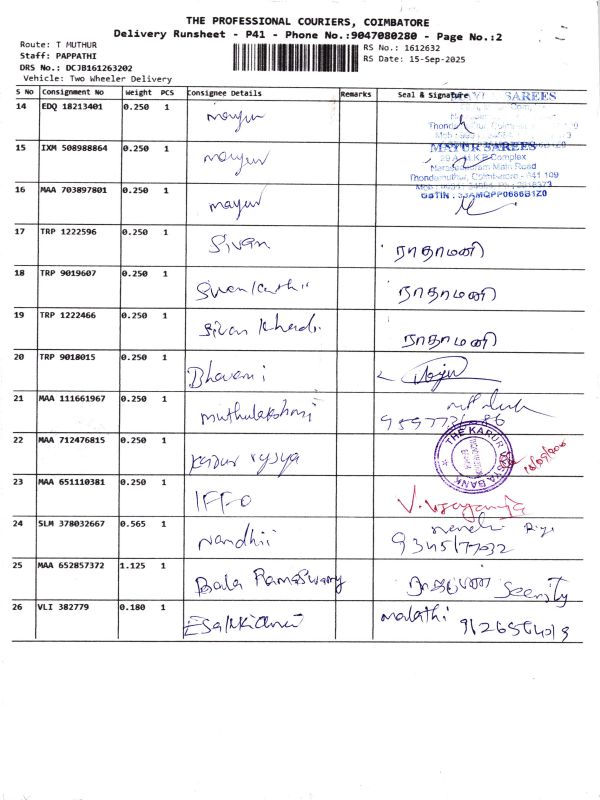 THE PROFESSIONAL COURIERS, COIMBATORE
Delivery Runsheet - P41 - Phone No.:9047080280 - Page No.:2
Route: T MUTHUR
RS No.: 1612632
Staff: PAPPATHI
RS Date: 15-Sep-2025
DRS No.: DCJB161263202
Vehicle: Two Wheeler Delivery
S No Consignment No Weight PCS Consignee Details Remarks Seal & Signature
14 EDQ 18213401 0.250 1 mayur
15 IXM 508988864 0.250 1 mayur MAYUR SAREES
Narasipuram Main Road
Thondamuthur, Coimbatore - 641 109
16 MAA 703897801 0.250 1 mayur
GSTIN : 33AMQPP0686B1Z0
17 TRP 1222596 0.250 1 Sivan ராதாமணி
18 TRP 9019607 0.250 1 ராதாமணி
19 TRP 1222466 0.250 1 ராதாமணி
20 TRP 9018015 0.250 1 Bhavani
21 MAA 111661967 0.250 1 muthulakshmi
22 MAA 712476815 0.250 1 karur vysya THE KARUR VYSYA BANK
23 MAA 651110381 0.250 1 IFFO
24 SLM 378032667 0.565 1 Nandhii
25 MAA 652857372 1.125 1 Bala Ramaswamy
26 VLI 382779 0.180 1 malathi